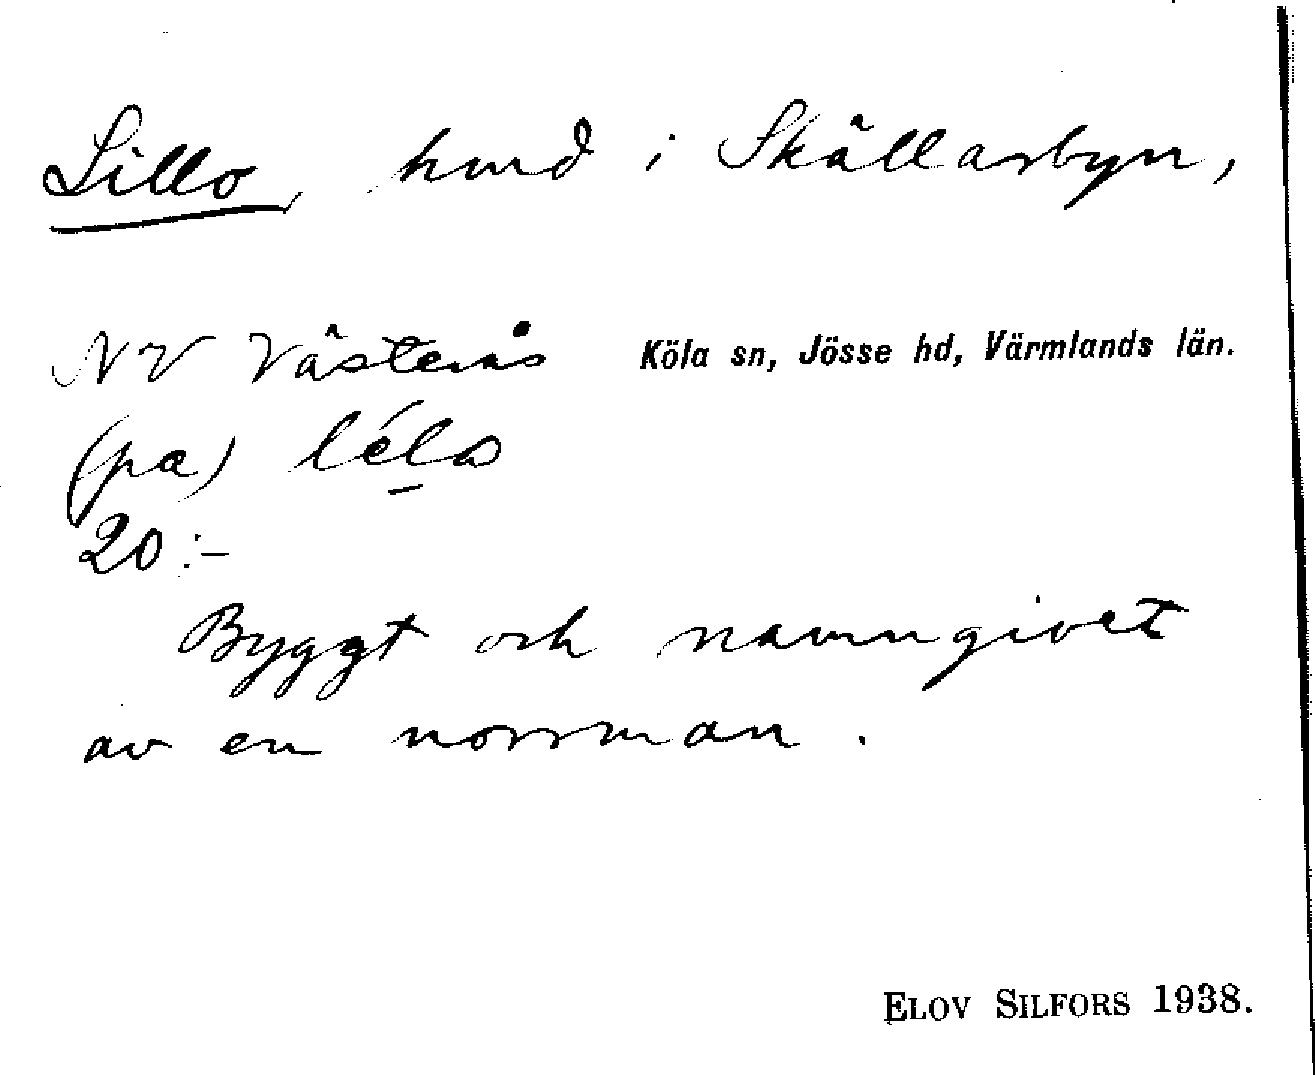 Lillo, hmd i Skällarbyn,
NV Västerås Köla sn, Jösse hd, Värmlands län.
(pa) lélo
20:-
Byggt och namngivet
av en norrman.
ELOV SILFORS 1938.